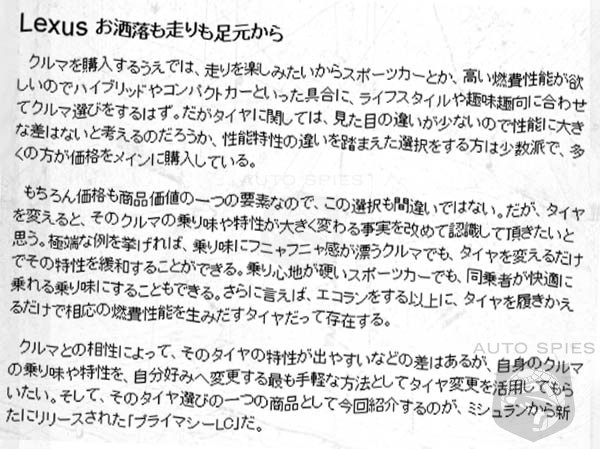 Lexus お洒落も走りも足元から
クルマを購入するうえでは、走りを楽しみたいからスポーツカーとか、高い燃費性能が欲
しいのでハイブリッドやコンパクトカーといった具合に、ライフスタイルや趣味趣向に合わせ
てクルマ選びをするはず。だがタイヤに関しては、見た目の違いが少ないので性能に大き
な差はないと考えるのだろうか、性能特性の違いを踏まえた選択をする方は少数派で、多
くの方が価格をメインに購入している。
もちろん価格も商品価値の一つの要素なので、この選択も間違いではない。だが、タイヤ
を変えると、そのクルマの乗り味や特性が大きく変わる事実を改めて認識して頂きたいと
思う。極端な例を挙げれば、乗り味にフニャフニャ感が漂うクルマでも、タイヤを変えるだけ
でその特性を緩和することができる。乗り心地が硬いスポーツカーでも、同乗者が快適に
乗れる乗り味にすることもできる。さらに言えば、エコランをする以上に、タイヤを履きかえ
るだけで相応の燃費性能を生みだすタイヤだって存在する。
AUTO SPIES
クルマとの相性によって、そのタイヤの特性が出やすいなどの差はあるが、自身のクルマ
の乗り味や特性を、自分好みへ変更する最も手軽な方法としてタイヤ変更を活用してもら
いたい。そして、そのタイヤ選びの一つの商品として今回紹介するのが、ミシュランから新
たにリリースされた「プライマシーLC」だ。